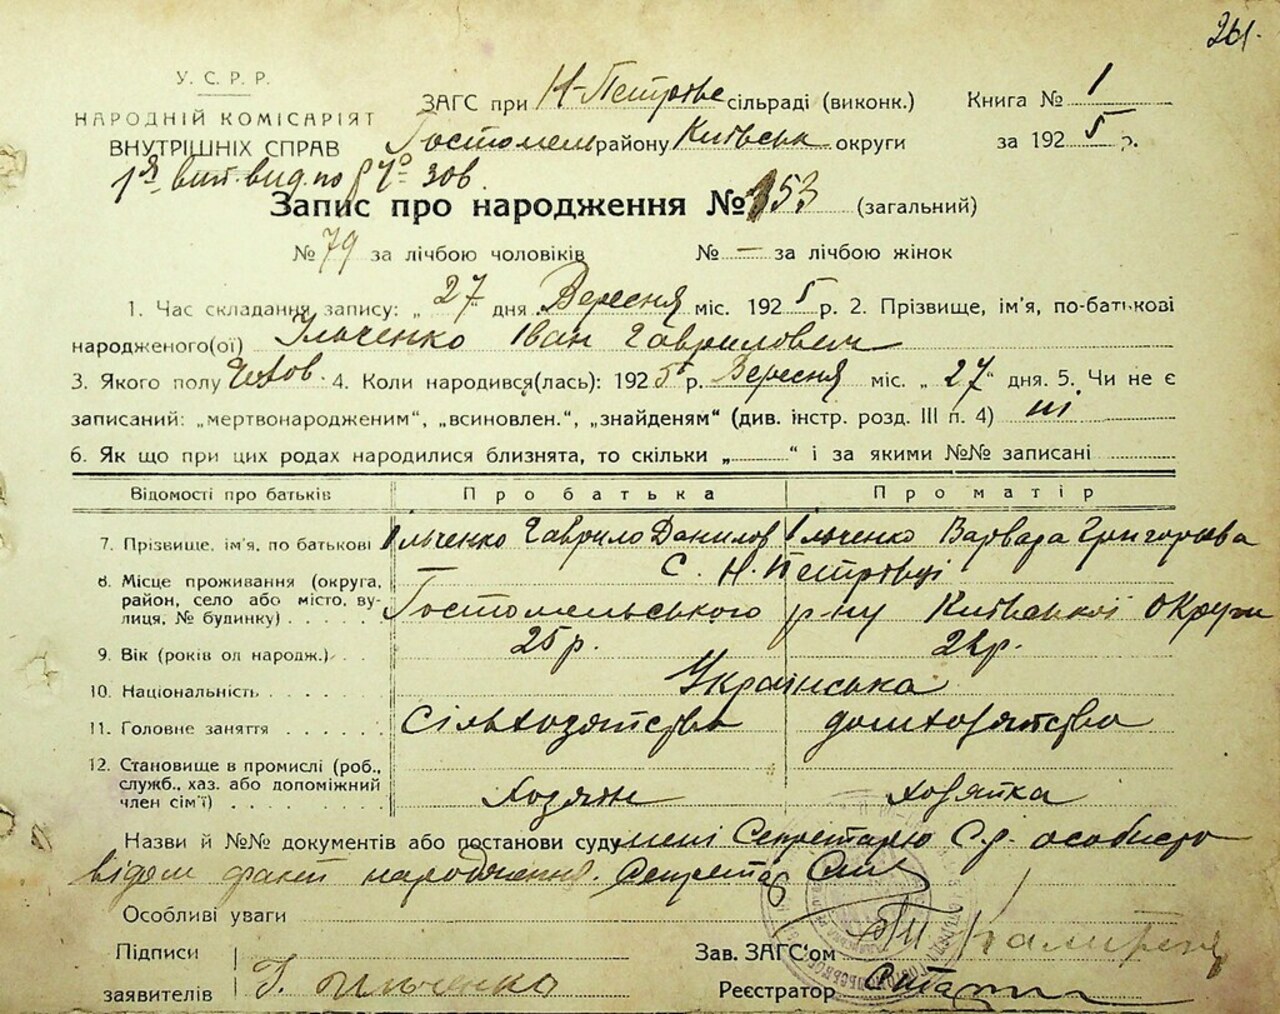 261.
У. С. Р. Р.
НАРОДНІЙ КОМІСАРІЯТ
ВНУТРІШНІХ СПРАВ
ЗАГС при Н-Петрівс сільраді (виконк.) Книга № 1
Гостомель району Київськ. округи за 1925 р.
1я вип. вид. по
Запис про народження № 153 (загальний)
№ 79 за лічбою чоловіків № — за лічбою жінок
1. Час складання запису: „27“ дня Вересня міс. 1925 р. 2. Прізвище, ім'я, по-батькові
народженого(ої) Ільченко Іван Гаврилович
3. Якого полу Чолов. 4. Коли народився(лась): 1925 р. Вересня міс. „27“ дня. 5. Чи не є
записаний: „мертвонародженим“, „всиновлен.“, „знайденям“ (див. інстр. розд. III п. 4) ні
6. Як що при цих родах народилися близнята, то скільки „ “ і за якими №№ записані
Відомості про батьків Про батька Про матір
7. Прізвище, ім'я, по батькові Ільченко Гаврило Данилов Ільченко Варвара Григорьева
8. Місце проживання (округа, район, село або місто, вулиця, № будинку) С. Н. Петрівці
Гостомельського р-ну Київської Округи
9. Вік (років од народж.) 25 р. 24 р.
10. Національність Українська
11. Головне заняття Сільхозяйство домхозяйство
12. Становище в промислі (роб., служб., хаз. або допоміжний член сім'ї) Хозяїн Хозяйка
Назви й №№ документів або постанови суду мені Секретарю С.р. особисто
відом факт народження. Секретар
Особливі уваги
Підписи
заявителів Г. Ильченко
Зав. ЗАГС'ом
Реєстратор